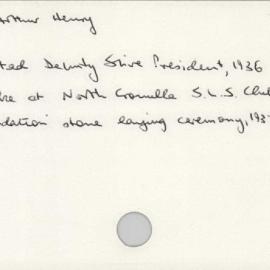 Arthur Henry
ted Deputy Shire President, 1936
re at North Cronulla S.L.S. Club
dation stone laying ceremony, 193